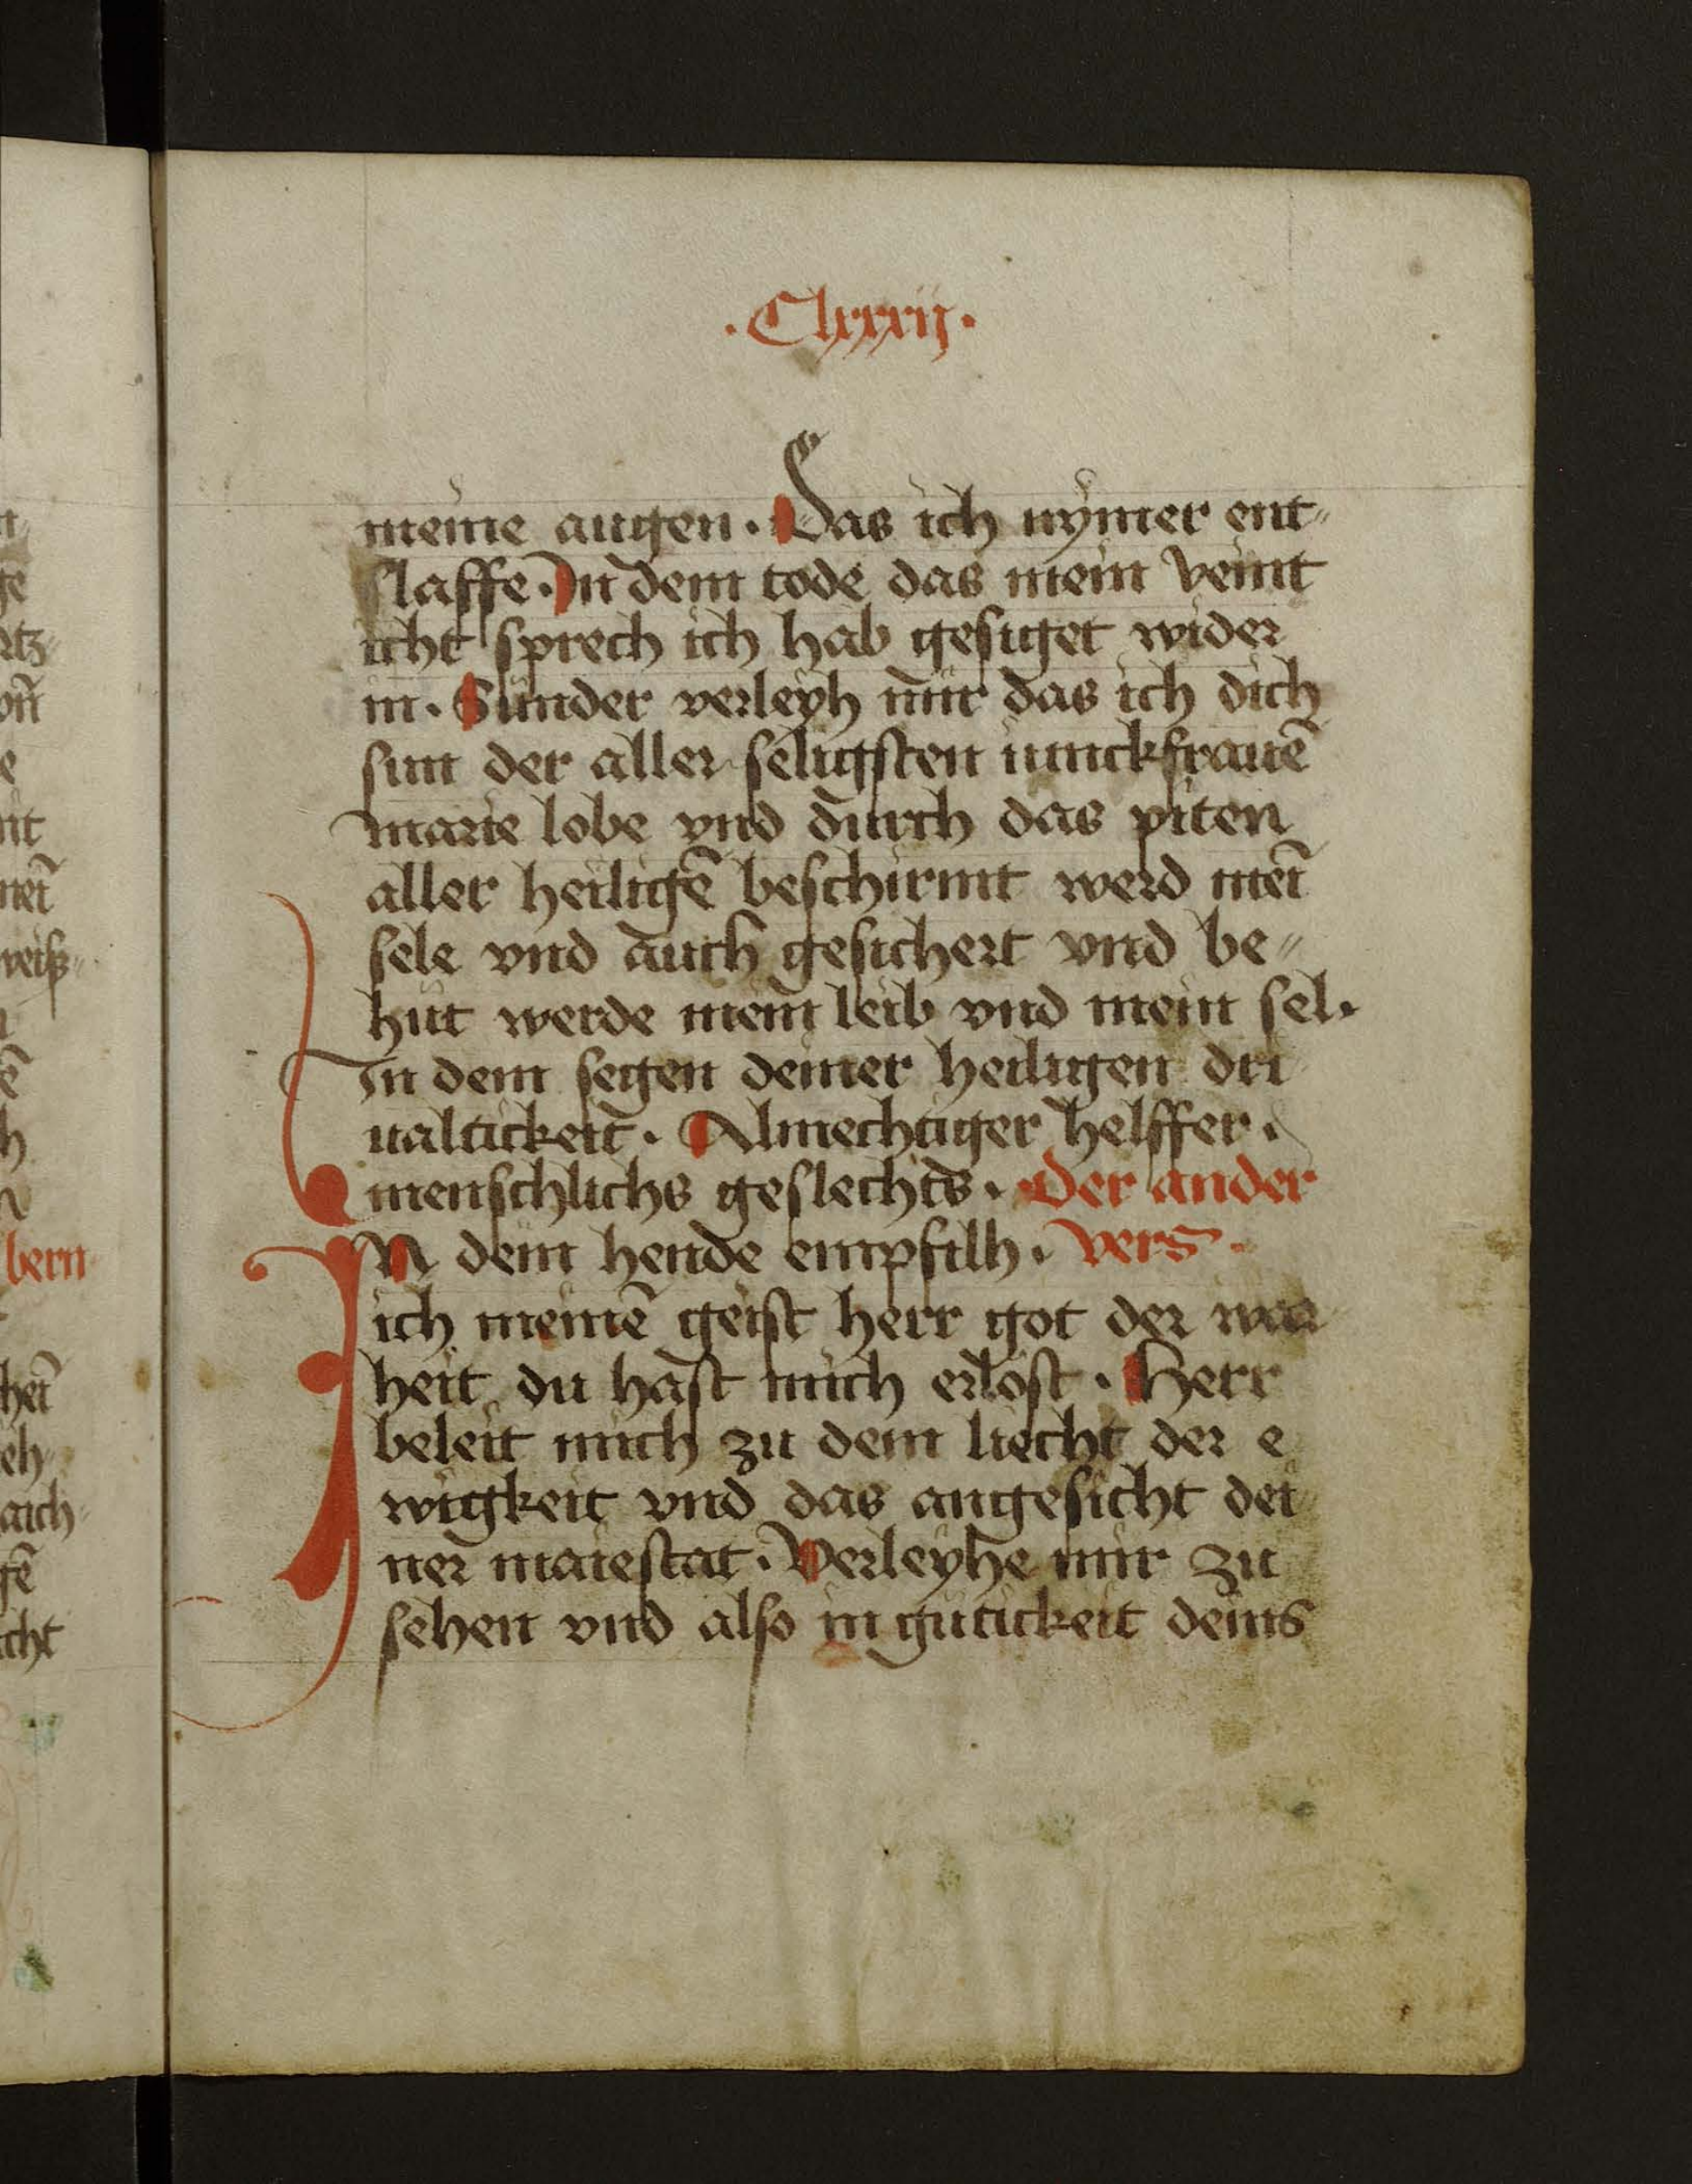 ·Clxxxij·
meine augen· Das ich nymer ent
slaffe· In dem tode das mein veint
icht sprech ich hab gesiget wider
in· Sunder verleyh mir das ich dich
sun der aller seligsten iunckfrauē
marie lobe vnd durch das piten
aller heiligē beschirmt werd meī
sele vnd auch gesichert vnd be
hut werde mein leib vnd mein sel·
In dem segen deiner heiligen dri
ualtickeit· Almechtiger helffer·
menschlichs geslechts· der ander
IN dein hende empfilh· vers·
ich meinē geist herr got der war
heit du hast mich erlost· Herr
beleit mich zu dem liecht der e
wigkeit vnd das angesicht dei
ner maiestat· Verleyhe mir zu
sehen vnd also in gutickeit deins